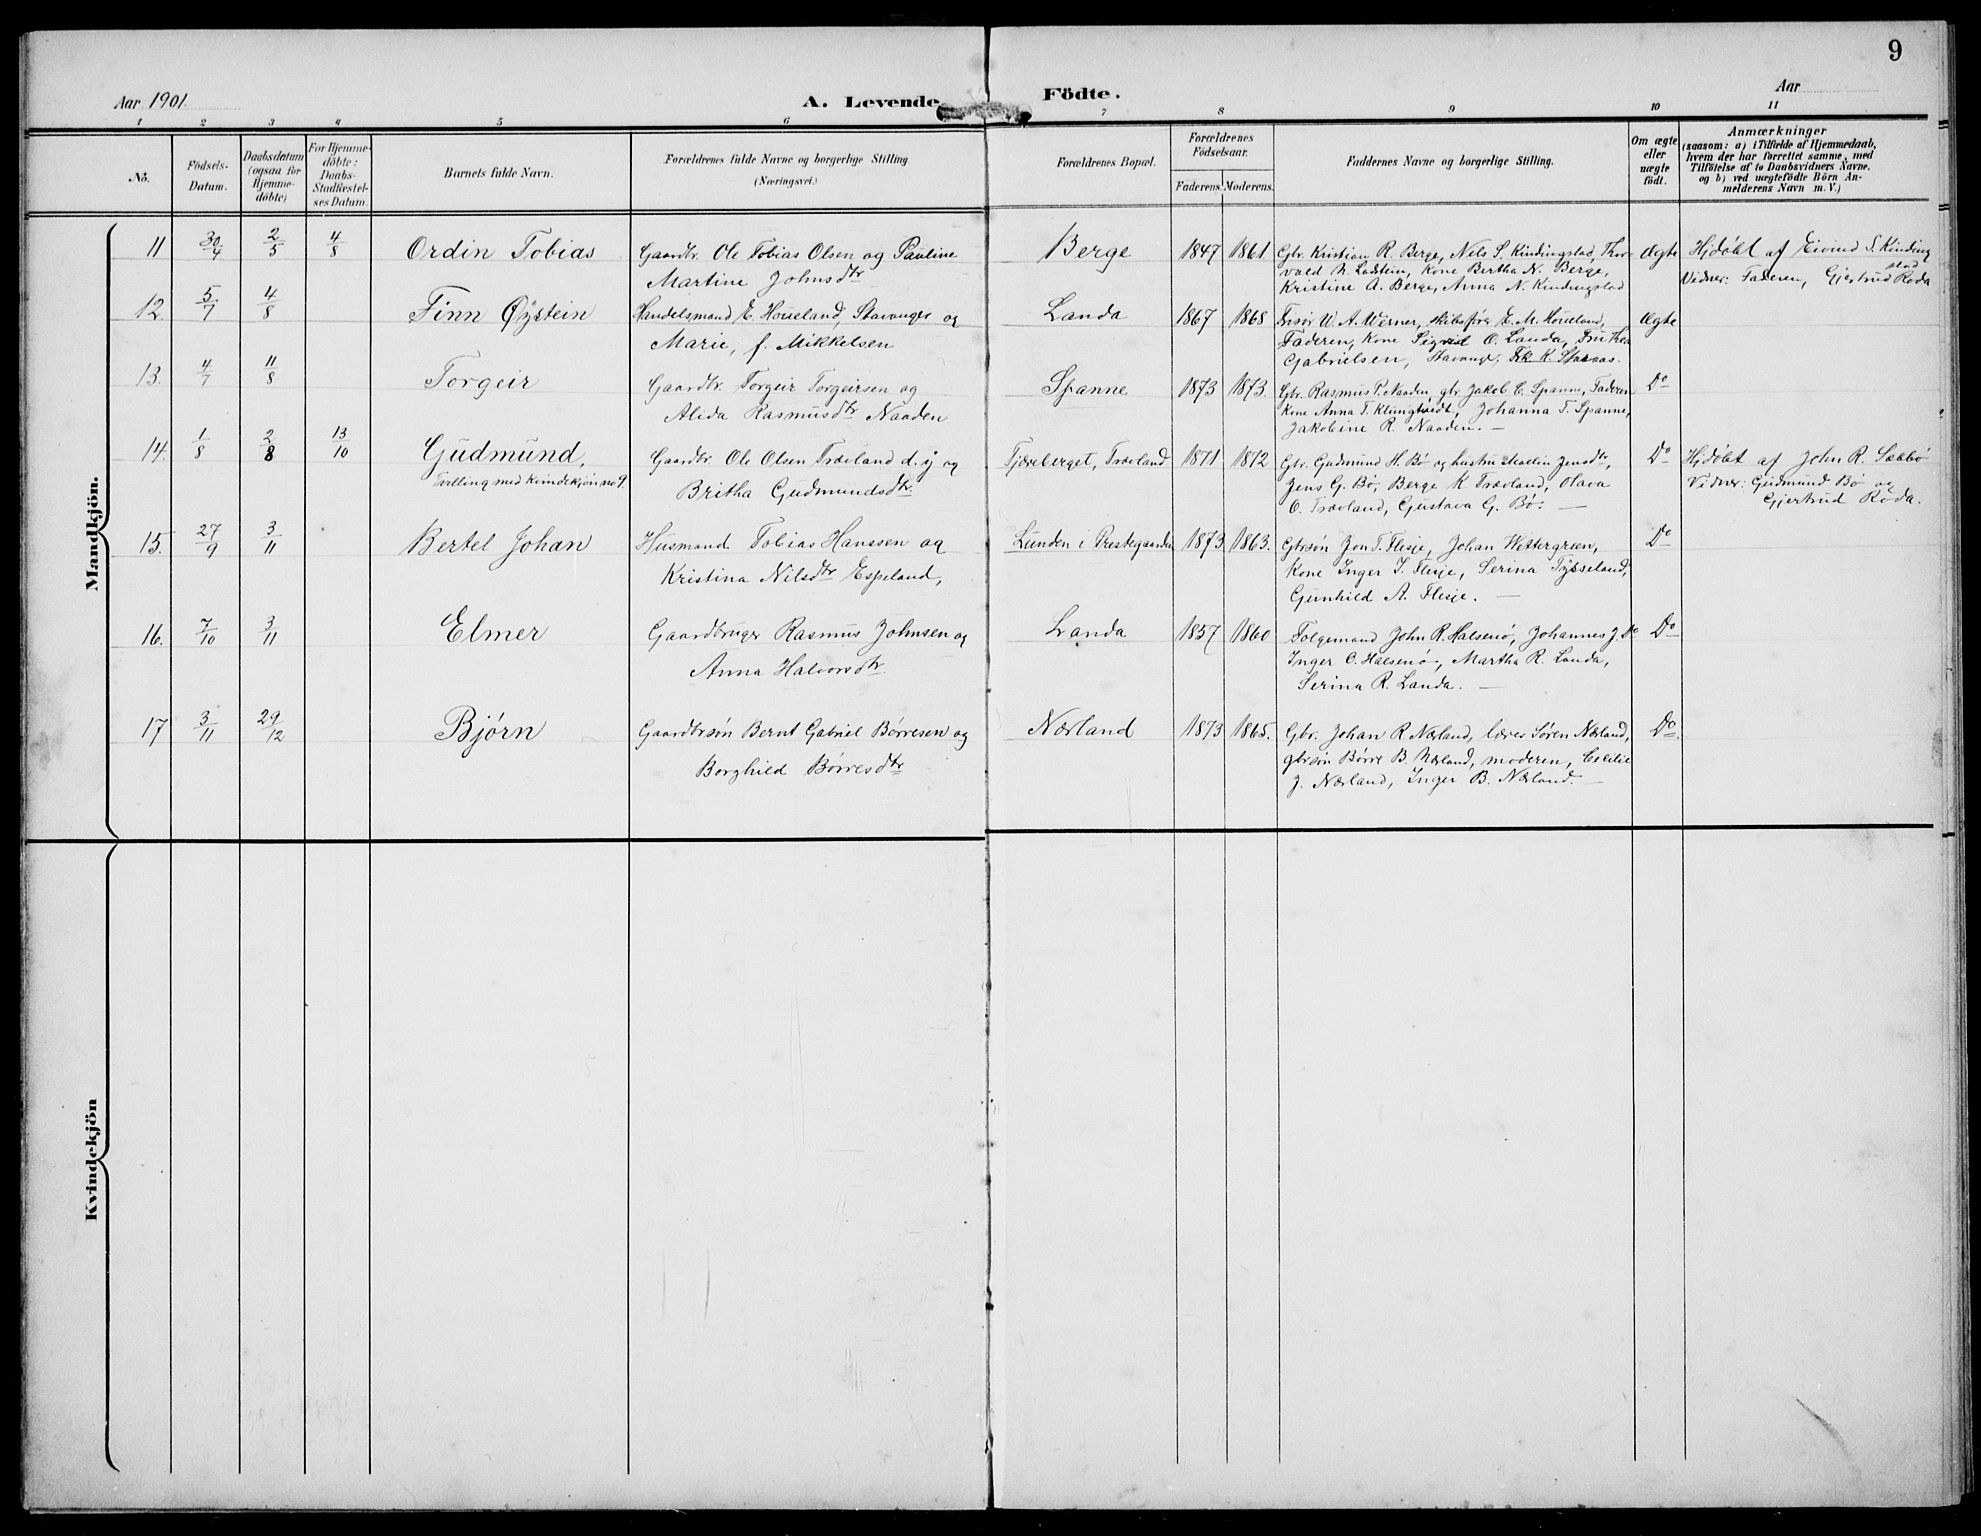 9
Aar 1901.
A. Levende
Födte.
Aar
1 2 3 4 5 6 7 8 9 10 11
No.
Födsels-
Datum.
Daabsdatum
(ogsaa for
Hjemme-
döbte)
For Hjemme-
döbte:
Daabs-
Stadfæstel-
ses Datum.
Barnets fulde Navn.
Forældrenes fulde Navne og borgerlige Stilling.
(Næringsvei.)
Forældrenes Bopæl.
Forældrenes
Födselsaar.
Faderens. Moderens.
Faddernes Navne og borgerlige Stilling.
Om ægte
eller
uægte
födt.
Anmærkninger
(saasom: a) i Tilfælde af Hjemmedaab,
hvem der har forrettet samme, med
Tilföielse af to Daabsvidners Navne,
og b) ved uægtefödte Börn An-
melderens Navn m. V.)
Mandkjön.
11 30/4 2/5 4/8 Ordin Tobias
Gaardbr. Ole Tobias Olsen og Pauline
Martine Johnsdtr
Berge 1847 1861
Gbr. Kristian R. Berge, Nels S. Kindingstad, Thor-
vald N. Ladstein, Kone Bertha N. Berge,
Kristine A. Berge, Anna N. Kindingstad
Ægte
Hjdøbt af Eivind S. Kinding
stad
Vidner: Faderen, Gjertrud Røda
12. 5/7 4/8 Finn Øystein
Handelsmand E. Houeland, Stavanger og
Marie, f. Mikkelsen
Landa 1867 1868
W. A. Werner, skibsfører E. M. Houeland,
Faderen, Kone Sigrid O. Landa, Fru Thea
Gabrielsen, Stavang.
Ægte
13. 4/7 11/8 Torgeir
Gaardbr. Torgeir Torgeirsen og
Alida Rasmusdtr Naaden
Spanne 1873 1873.
Gbr. Rasmus T. Naaden, gbr Jakob E. Spanne, Faderen
Kone Anna T. Klungtvedt, Johanna T. Spanne,
Jakobine R. Naaden. —
Do
14. 1/8 2/8 13/10 Gudmund,
Tvilling med kvindekjøn no 9.
Gaardbr. Ole Olsen Trævland d. y og
Britha Gudmundsdtr.
Tjæreberget, Trævland 1871 1872
Gbr. Gudmund H. Bø og hustru Malin Jensdtr,
Jens G. Bø, Berge K Trævland, Olava
O. Trævland, Gustava G. Bø. —
Do
Hjdøbt af John R. Sæbbø
Vidner: Gudmund Bø og
Gjertrud Røda.
15. 27/9 3/11 Bertel Johan
Husmand Tobias Hanssen og
Kristina Nilsdtr Espeland,
Lunden i Prestegaarden 1873 1863.
Gbrsøn Jon T. Flesje, Johan Wettergreen,
Kone Inger J. Flesje, Serina Tysseland,
Gunhild A. Flesje. —
Do
16. 7/10 3/11 Elmer
Gaardbruger Rasmus Johnsen og
Anna Halvorsdtr.
Landa 1857 1860
Folgemand John R. Halsenø, Johannes J. Do
Inger O. Halsenø, Martha R. Landa,
Serina R. Landa. —
Do
17. 3/11 29/12 Bjørn
Gaardbrsøn Bernt Gabriel Børresen og
Borghild Børresdtr
Nærland 1873 1865.
Gbr. Johan R Nærland, lærer Søren Nærland,
gbrsøn Børre B. Nærland, moderen, Cecilie
J. Nærland, Inger B. Nærland. —
Do.
Kvindekjön